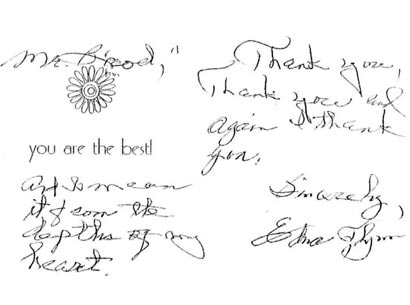 Mr. Brood,"
you are the best!
and I mean
it from the
depths of my
heart.
Thank you,
Thank you and
again I thank
you.
Sincerely,
Edna Flynn